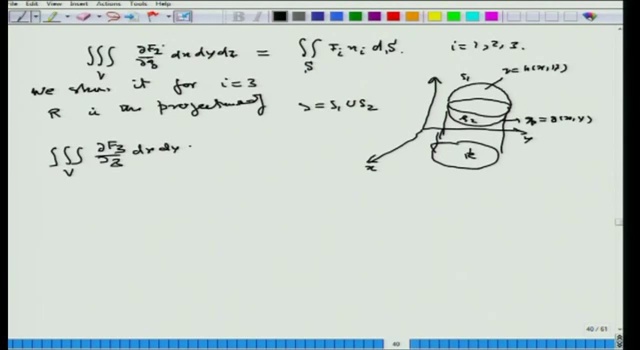 File Edit View Insert Actions Tools Help
∭_V ∂F_i/∂z dx dy dz = ∬_S F_i n_i dS. i = 1, 2, 3.
We show it for i = 3
R is the projection of S = S_1 ∪ S_2
∭_V ∂F_3/∂z dx dy
S_1
z = h(x,y)
S_2
z = g(x,y)
R
x
y
40 / 61
40